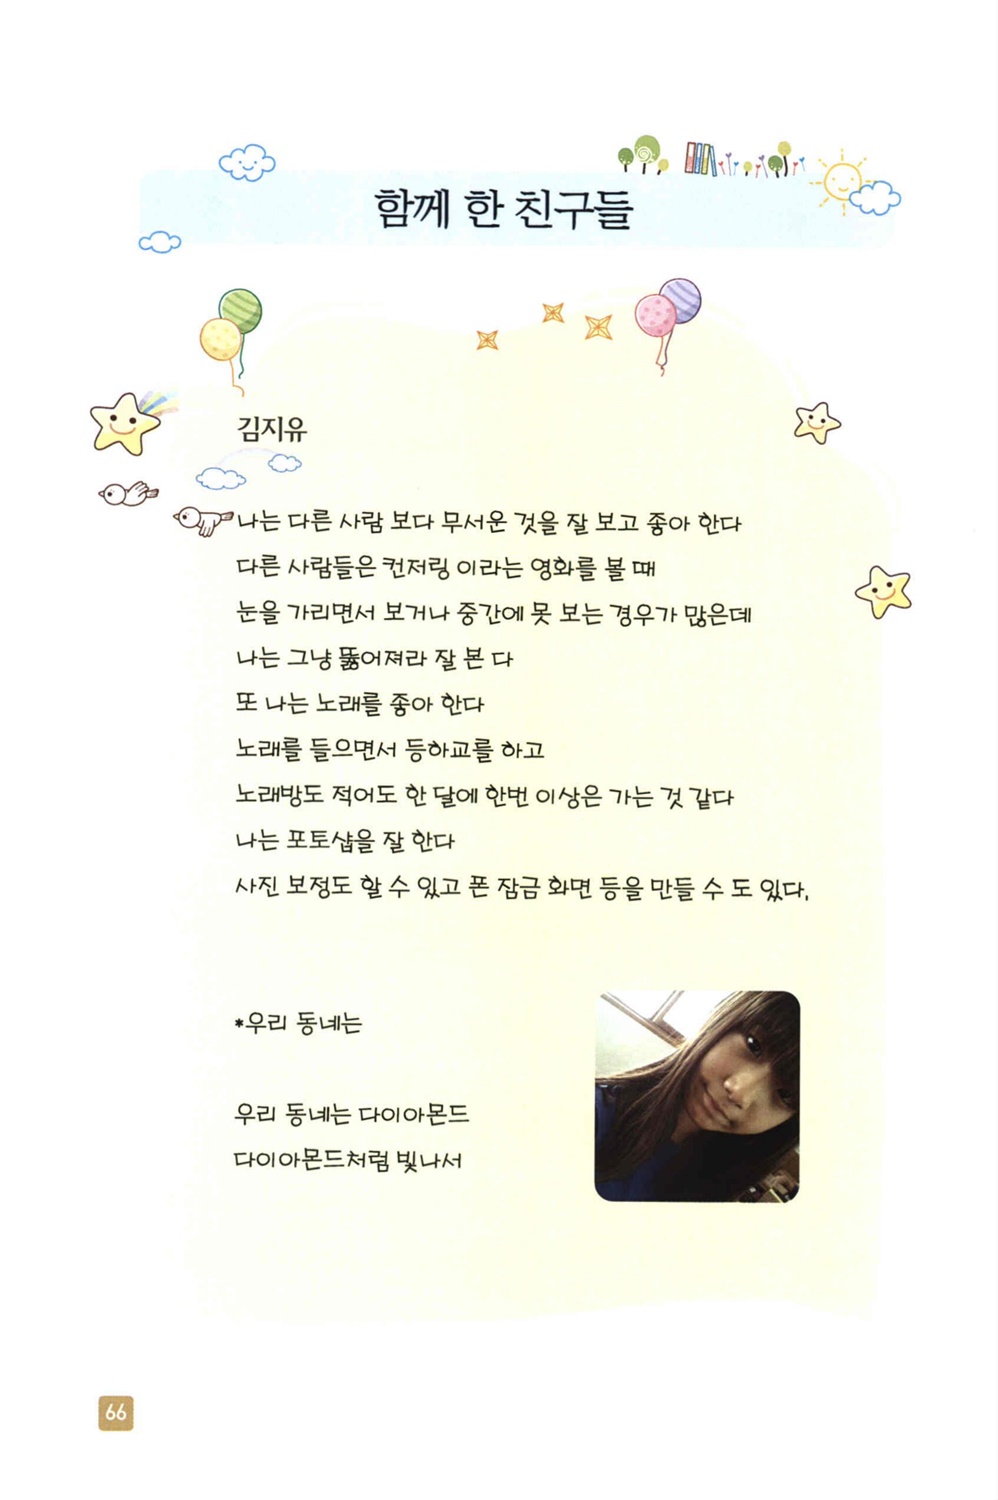 함께 한 친구들
김지유
나는 다른 사람 보다 무서운 것을 잘 보고 좋아 한다
다른 사람들은 컨저링 이라는 영화를 볼 때
눈을 가리면서 보거나 중간에 못 보는 경우가 많은데
나는 그냥 뚫어져라 잘 본 다
또 나는 노래를 좋아 한다
노래를 들으면서 등하교를 하고
노래방도 적어도 한 달에 한번 이상은 가는 것 같다
나는 포토샵을 잘 한다
사진 보정도 할 수 있고 폰 잠금 화면 등을 만들 수 도 있다.
*우리 동네는
우리 동네는 다이아몬드
다이아몬드처럼 빛나서
66